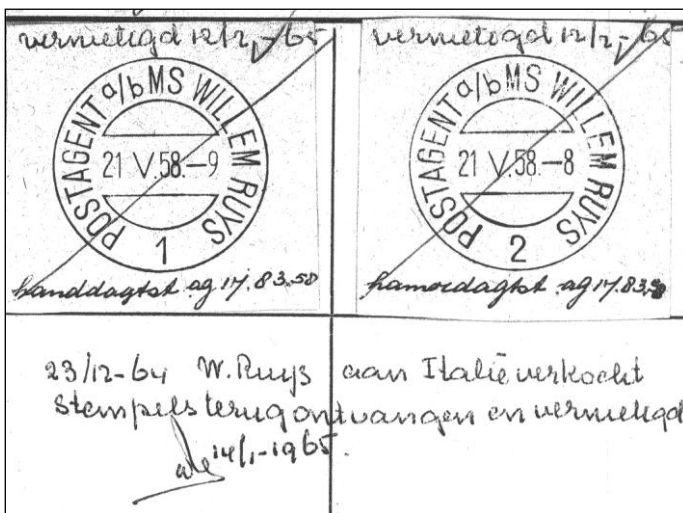 vernietigd 12/2-65
POSTAGENT a/b MS WILLEM RUYS
21 V.58.-9
1
handdagtst. ag 17.83.58
vernietigd 12/2-65
POSTAGENT a/b MS WILLEM RUYS
21 V.58.-8
2
hamerdagtst. ag 17.83.58
23/12-64 W. Ruys aan Italië verkocht
stempels terug ontvangen en vernietigd
14/1-1965.